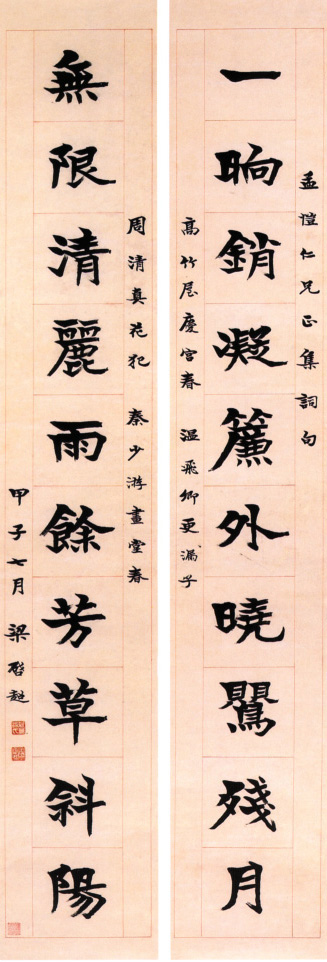 孟愷仁兄正集詞句
一晌銷凝簾外曉鸎殘月
高竹屋慶宮春 溫飛卿更漏子
周清真花犯 秦少游畫堂春
無限清麗雨餘芳草斜陽
甲子七月梁啓超